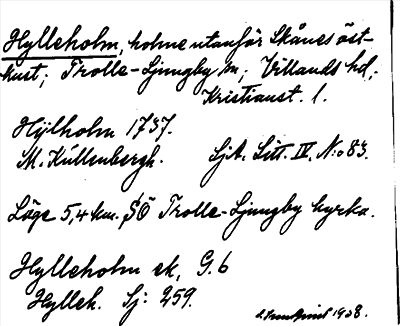 Hylleholm, holme utanför Skånes öst-
kust; Trolle-Ljungby sn; Villands hd;
Kristianst. l.
Hÿlholm 1737.
M. Küllenbergh. SjA. Litt. IV, N:o 83.
Läge 5,4 km. SÖ Trolle-Ljungby kyrka.
Hylleholm ek, G. 6
Hylleh. Sj: 259.
1938.